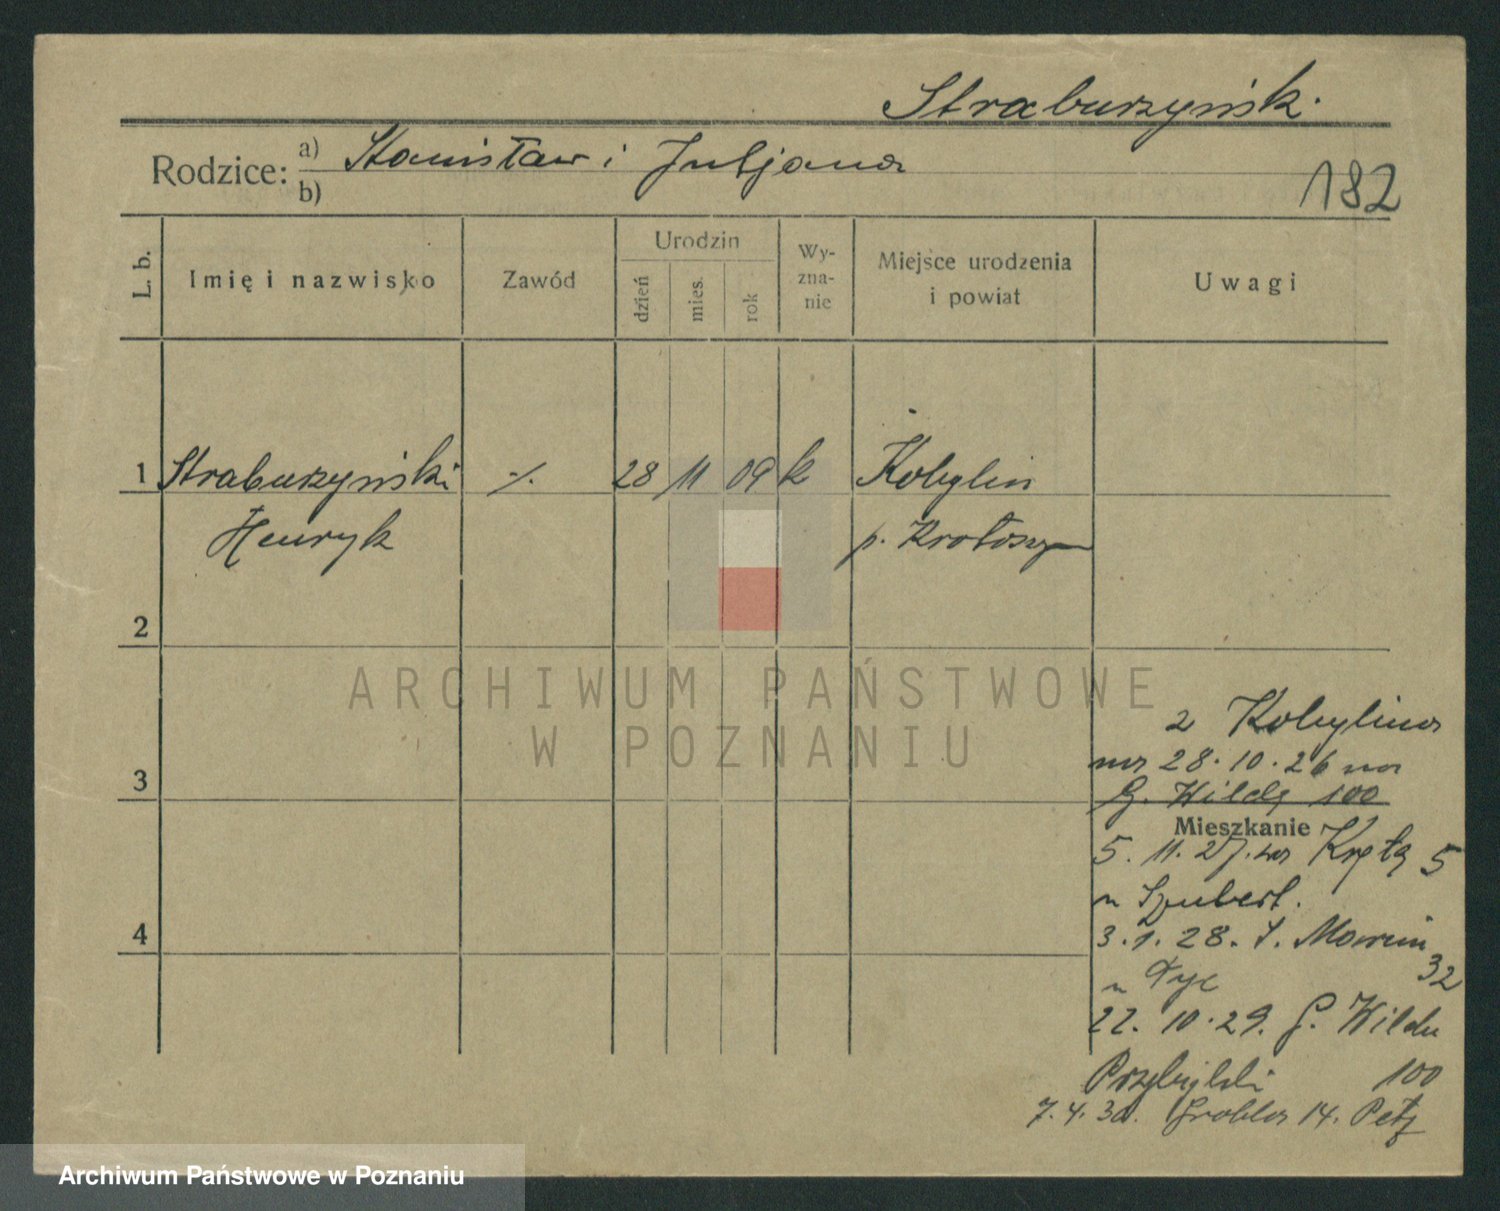 Straburzyński
Rodzice: a) Stanisław i Juljana
b)
182
L. b. Imię i nazwisko Zawód Urodzin dzień mies. rok Wy-zna-nie Miejsce urodzenia i powiat Uwagi
1 Straburzyński ./. 28 11 09 k Kobylin
Henryk p. Krotoszyn
2
ARCHIWUM PAŃSTWOWE
W POZNANIU
z Kobylina
28.10.26 na
3
G. Wildę 100
Mieszkanie
5. 11. 27. na Krętą 5
u Szubert.
4
3.1.28. S. Marcin
32
u Tyc
22. 10. 29. G. Wilda
Przybylski 100
7.4.30. Grobla 14. Petz
Archiwum Państwowe w Poznaniu